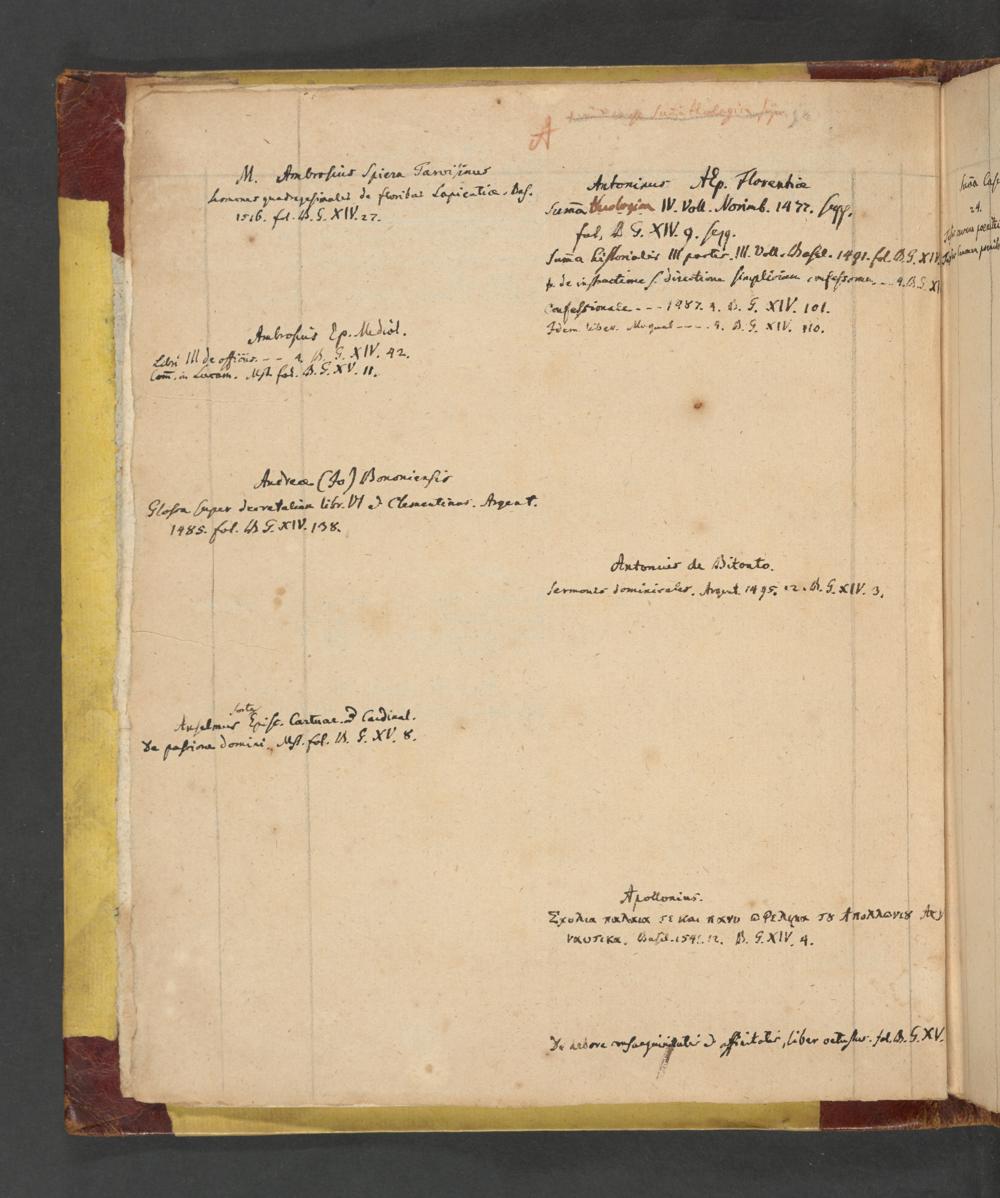 A
M. Ambrosius Spiera Tarvisinus
Sermones quadragesimales de floribus Sapientiae. Bas.
1516. fol. B. G. XIV. 27.
Ambrosius Ep. Mediol.
Libri III de officiis. -- 4. B. G. XIV. 42.
Com̄. in Lucam. Mst. fol. B. G. XV. 11.
Andreae (Jo) Bononiensis
Glossa super decretalium libr. VI et Clementinas. Argent.
1485. fol. B. G. XIV. 138.
forte
Anselmus Episc. Cartuar. et Cardinal.
De passione domini. Mst. fol. B. G. XV. 8.
Antoninus AEp. Florentiae
Sum̄a theologiae IV. Voll. Norimb. 1477. seqq.
fol. B. G. XIV. 9. seqq.
Sum̄a historialis III partes. III. Voll. Basil. 1491. fol. B. G. XIV
de instructione s. directione simplicium confessorum --- 4. B. G. XI
Confessionale --- 1487. 4. B. G. XIV. 101.
Idem liber. Mogunt ---- 4. B. G. XIV. 110.
Antonius de Bitonto.
Sermones dominicales. Argent. 1495. 12. B. G. XIV. 3.
Apollonius.
Σχολια παλαια τε και πανυ ωφελιμα του Απολλωνιου
ναυτικα. Basil. 1541. 12. B. G. XIV. 4.
De arbore consanguinitatis et affinitatis, liber vetustus. fol. B. G. XV.